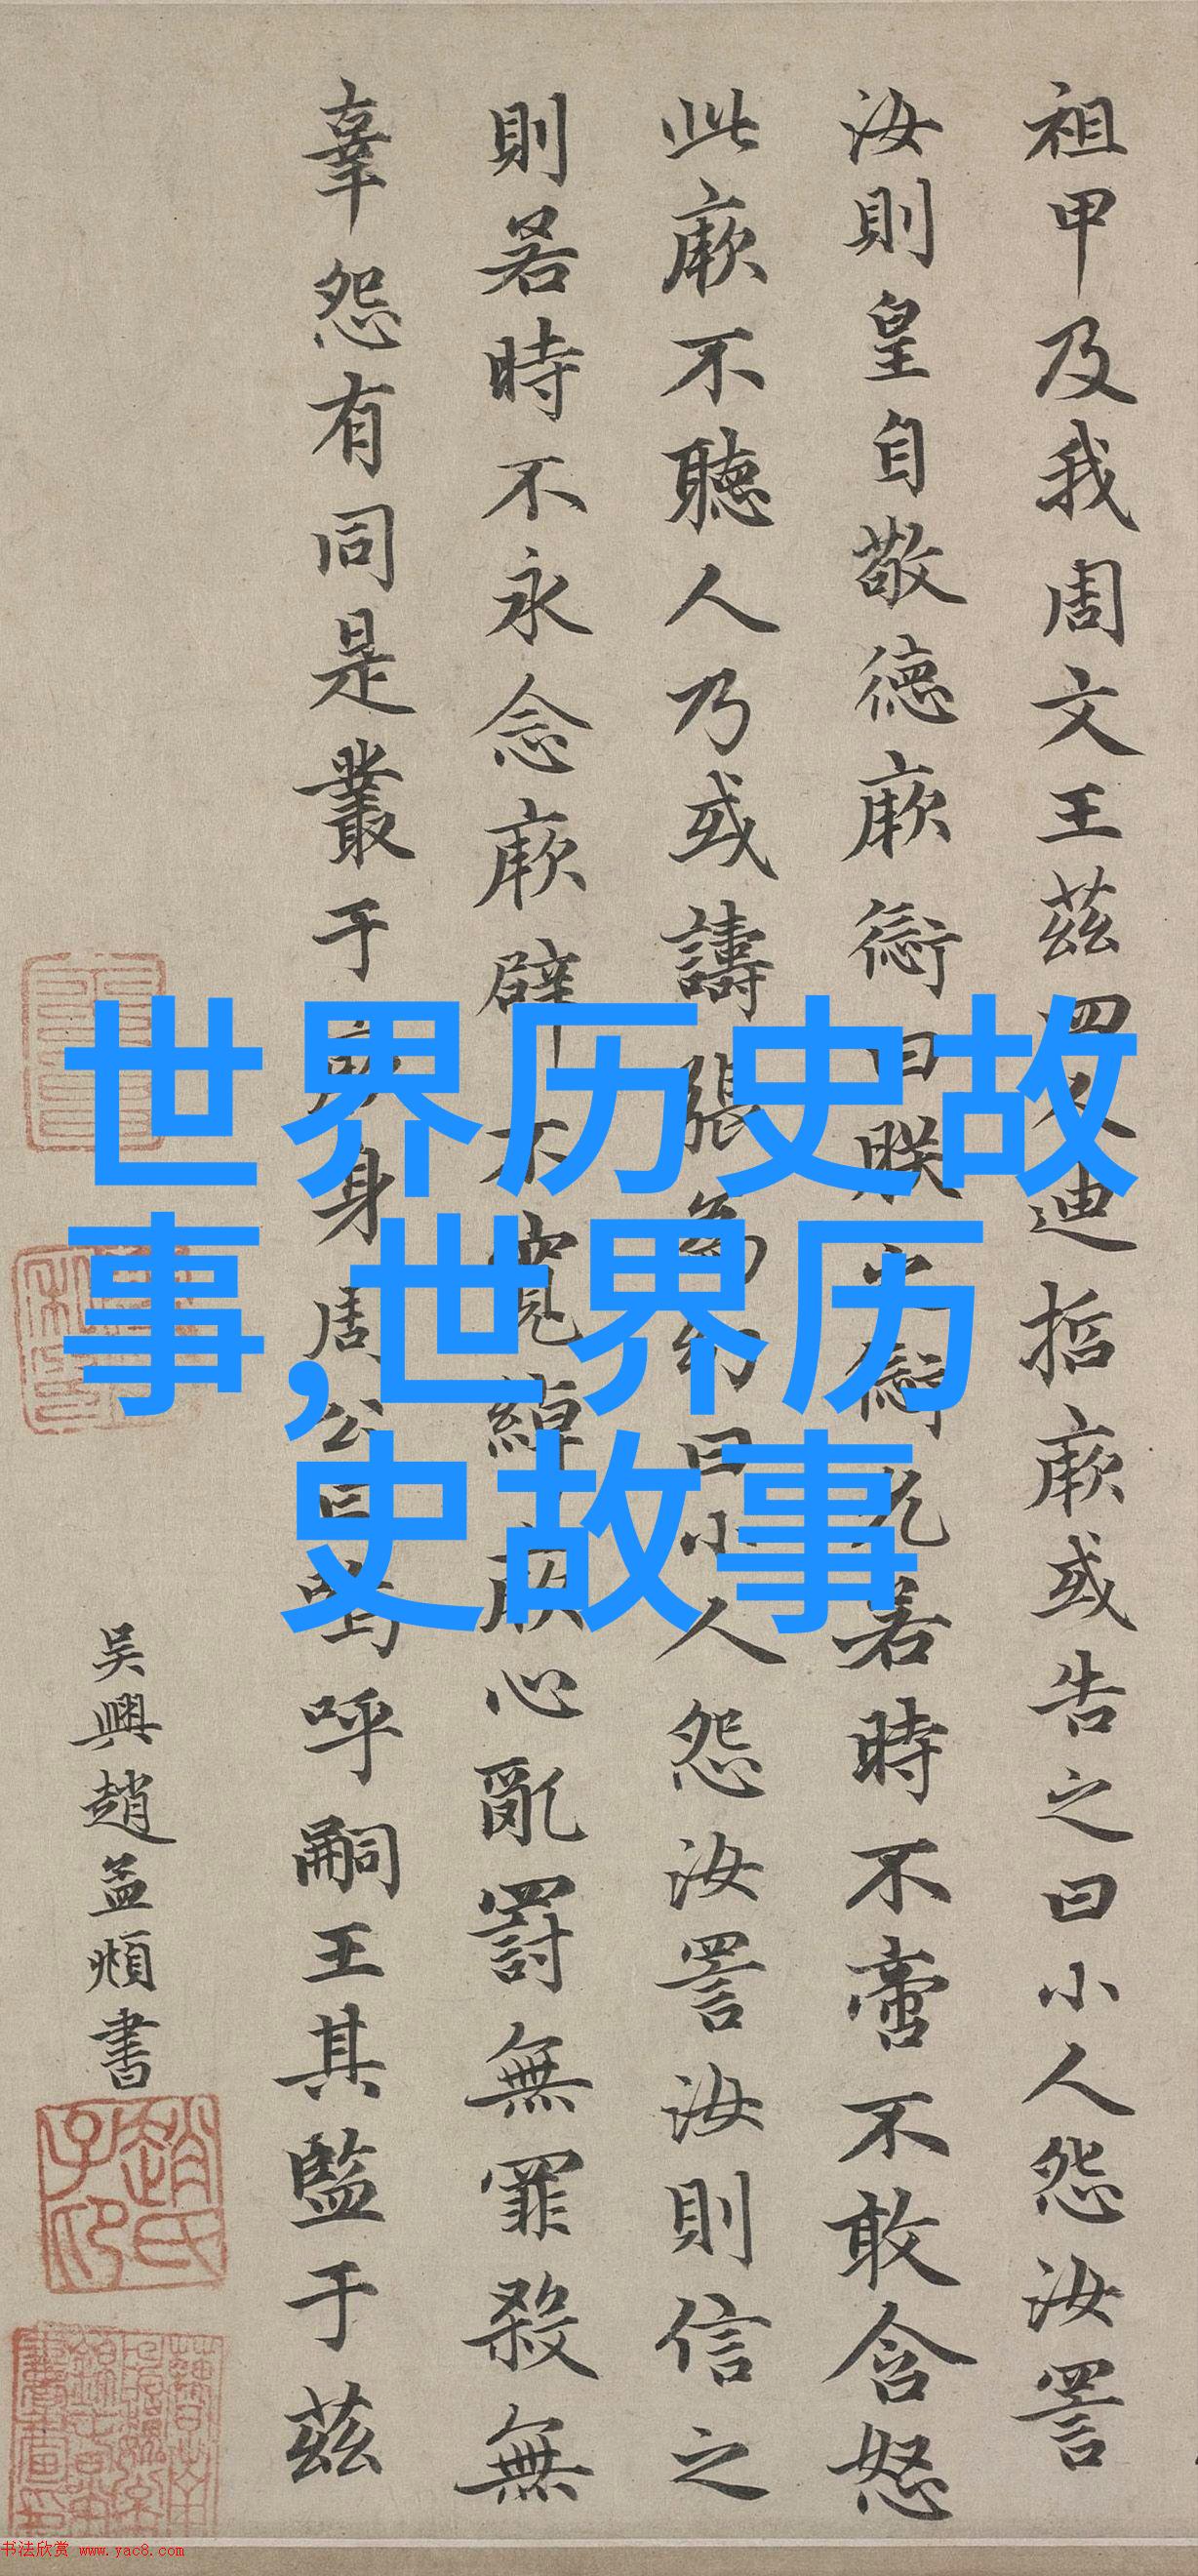 祖甲及我周文王茲四人迪哲厥或告之曰小人怨汝詈
汝則皇自敬德厥愆曰朕之愆允若時不啻不敢含怒
此厥不聽人乃或譸張為幻曰小人怨汝詈汝則信之
則若時不永念厥辟不寬綽厥心亂罰無罪殺無
辜怨有同是叢于厥身周公曰嗚呼嗣王其監于茲
吴興趙孟頫書
趙氏子昂
世界历史故
事,世界历
史故事
书法欣赏 www.yac8.com